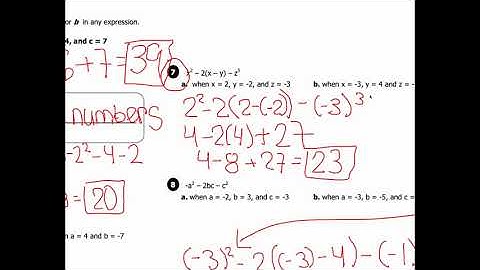 or b in any expression.
4, and c = 7
+ 7 = 39
7 x² - 2(x - y) - z³
a. when x = 2, y = -2, and z = -3
b. when x = -3, y = 4 and z =
2² - 2(2-(-2)) - (-3)³
numbers
4 - 2(4) + 27
-2² - 4 - 2
4 - 8 + 27 = 23
= 20
8 -a² - 2bc - c²
a. when a = -2, b = 3, and c = -3
b. when a = -3, b = -5, and c =
n a = 4 and b = -7
(-3)² - 2(-3 - 4) - (-1)